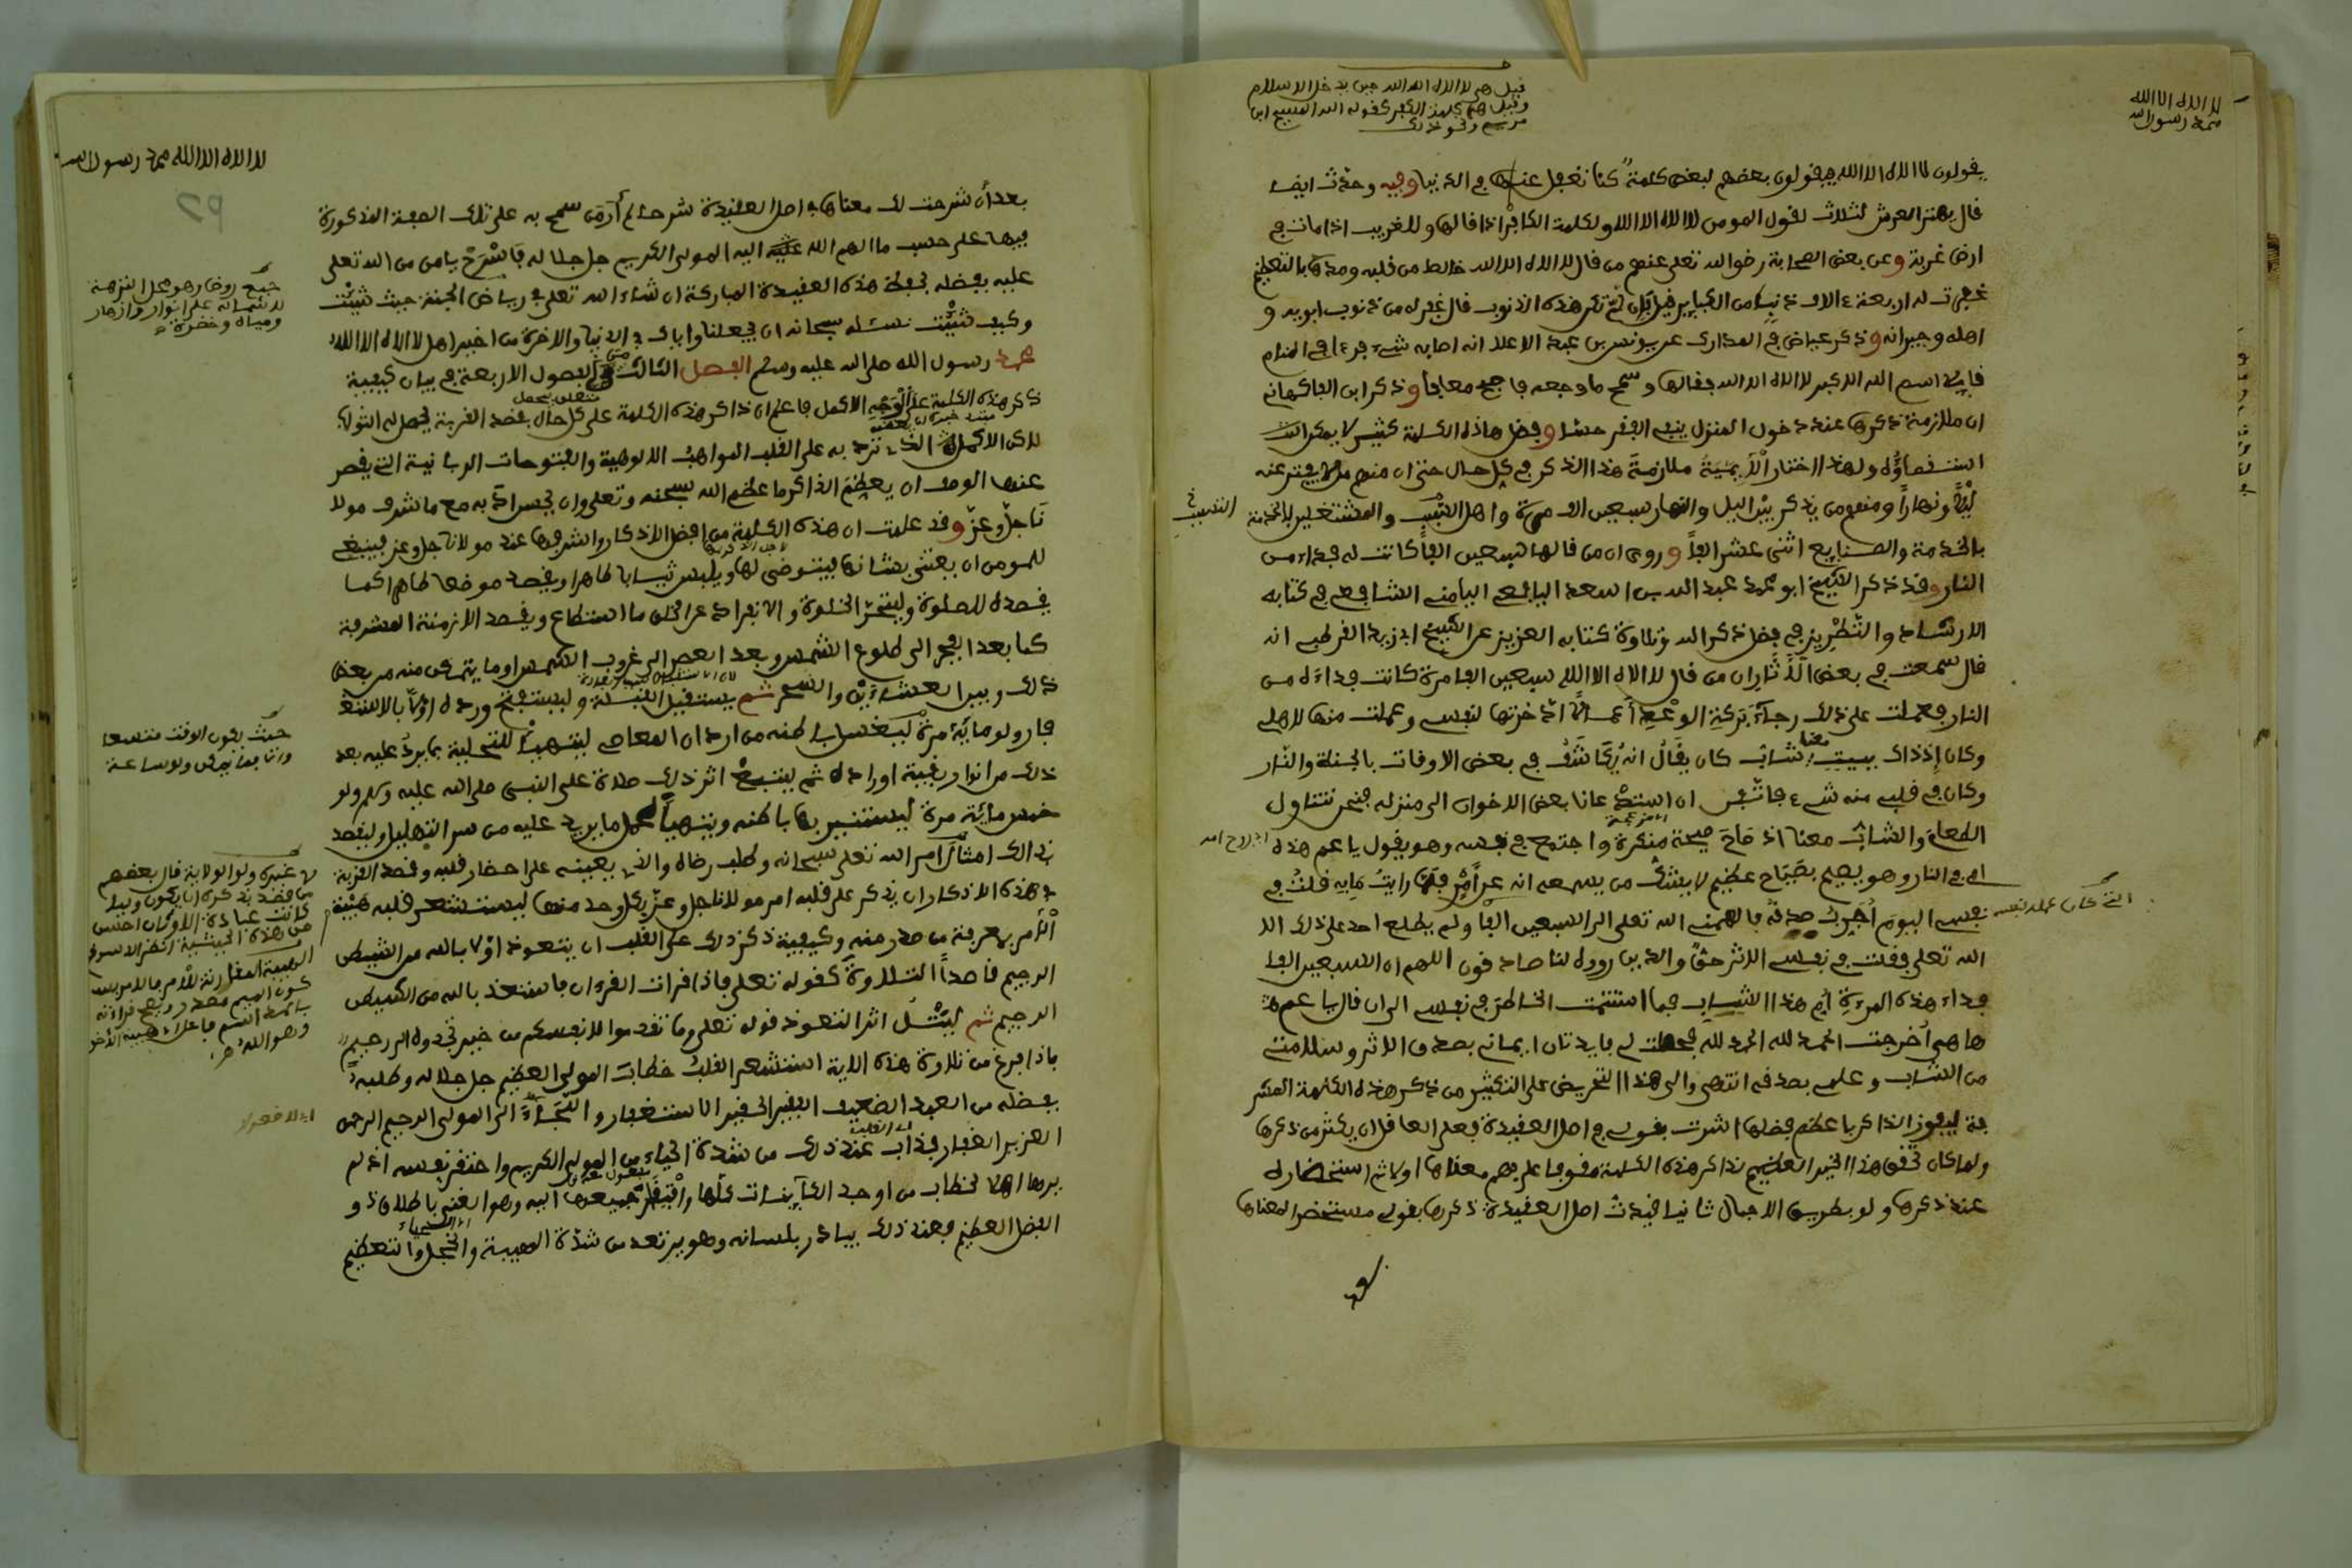 لا اله الا الله
محمد رسول الله
قيل هى لا اله الا الله حين يدخل الاسلام
وقيل هى كلمة الكفر كقوله الله المسيح ابن
مريم ونحو ذلك
يقولون لا اله الا الله فيقولون بعضهم لبعض كلمة كنا نغفل عنها في الدنيا وفيه وحدث ايضا
قال يهتز العرش لثلاث لقول المومن لا اله الا الله ولكلمة الكافر اذا قالها وللغريب اذا مات في
ارض غربة وعن بعض الصحابة رضى الله تعلى عنهم من قال لا اله الا الله خالصا من قلبه ومدها بالتعظيم
غفرت له اربعة ءالاف ذنب من الكباير قيل فان لم تكن هذه الذنوب قال غفر له من ذنوب ابويه و
اهله وجيرانه وذكر عياض في المدارك عن يونس بن عبد الاعلا انه اصابه شيء فرءا في المنام
قايلا اسم الله الاكبر لا اله الا الله فقالها ومسح ما وجعه فاصبح معافا وذكر ابن الفاكهاني
ان ملازمة ذكرها عند دخول المنزل ينفي الفقر وفضل هاذه الكلمة كثير لا يمكن
استقصاؤه ولهذا اختار الايمة ملازمة هذا الذكر في كل حال حتى ان منهم من لا يفتر عنه
ليلا ونهارا ومنهم من يذكر بين اليل والنهار سبعين الف مرة واهل التسبب والمشتغلين
بالخدمة والصنايع اثنى عشر الفا وروى ان من قالها سبعين الفا كانت له فداء من
النار وقد ذكر الشيخ ابو محمد عبد الله بن اسعد اليافعي اليامني الشافعي في كتابه
الارشاد والتطريز في فضل ذكر الله وتلاوة كتابه العزيز عن الشيخ ابي زيد القرطبي انه
قال سمعت في بعض الآثار ان من قال لا اله الا الله سبعين الف مرة كانت فداءه من
النار فعملت على ذلك رجاء بركة الوعد أعمالا ادخرتها لنفسي وعملت منها لاهلي
وكان إذ ذاك يبيت معنا شاب كان يقال انه يكاشف في بعض الاوقات بالجنة والنار
وكان في قلبي منه شيء فاتفق ان استدعانا بعض الاخوان الى منزله فنحن نتناول
الطعام والشاب معنا اذ صاح صيحة منكرة واجتمع في نفسه وهو يقول يا عم هذه
امي في النار وهو يصيح بصياح عظيم لا يشك من يسمعه انه عن أمر فلما رايت ما به قلت في
نفسي اليوم اجرب صدقه فالهمني الله تعلى الى السبعين الفا ولم يطلع احد على ذلك الا
الله تعلى فقلت في نفسي الاثر حق والذين رووه لنا صادقون اللهم ان السبعين الفا
فداء هذه المرءة أم هذا الشاب فما استتممت الخاطر في نفسي الى ان قال يا عم
ها هي أخرجت الحمد لله الحمد لله فحصلت لي فايدتان ايماني بصدق الاثر وسلامتي
من الشاب وعلمي بصدقه انتهى والى هذا التحريض على التكثير من ذكر هذه الكلمة المشر
فة ليفوز الذاكر باعظم فضلها اشرت بقولي في اصل العقيدة فعلى العاقل ان يكثر من ذكرها
ولما كان تحقق هذا الخير العظيم لذاكر هذه الكلمة موقوفا على فهم معناها اولا ثم استحضاره
عند ذكرها ولو بطريق الاجمال ثانيا قيدت اصل العقيدة ذكرها بقولي مستحضرا لمعناها
لا اله الا الله محمد رسول الله
بعد أن شرحت لك معناها في اصل العقيدة شرحا لم أر من سمح به على تلك الصفة المذكورة
فيها على حسب ما الهم الله اليه المولى الكريم جل جلاله فاسرح يا من من الله تعلى
عليه بفضله بحفظ هذه العقيدة المباركة ان شاء الله تعلى في رياض الجنة حيث شئت
وكيف شئت نسئله سبحانه ان يجعلنا واياك في الدنيا والاخرة من اخير اهل لا اله الا الله
محمد رسول الله صلى الله عليه وسلم الفصل الثالث من الفصول الاربعة في بيان كيفية
ذكر هذه الكلمة على الوجه الاكمل فاعلم ان ذاكر هذه الكلمة على كل حال بقصد القربة يحصل له الثواب
لاكن الاكمل الذي ترد به على القلب المواهب الالوهية والفتوحات الربانية التي يقصر
عنها الوصف ان يعظم الذاكر ما عظم الله سبحنه وتعلى وان يحسن ادبه مع ما شرف مولا
نا جل وعز وقد علمت ان هذه الكلمة من افضل الاذكار واشرفها عند مولانا جل وعز فينبغي
للمومن ان يعتني بشانها فيتوضى لها ويلبس ثيابا طاهرا ويقصد موضعا طاهرا كما
يقصده للصلوة وليتحر الخلوة والانفراد عن الخلق ما استطاع ويقصد الازمنة المشرفة
كما بعد الفجر الى طلوع الشمس وبعد العصر الى غروب الشمس او ما يتمكن منه من بعض
ذلك وبين العشاءين والسحر ثم يستقبل القبلة وليستفتح ورده اولا بالاستغ
فار ولو مائة مرة ليغسل باطنه من ادران المعاصي ليتهيأ للتحلية بما يرد عليه بعد
ذلك من انوار بقية اوراده ثم ليتبع اثر ذلك صلاة على النبي صلى الله عليه وسلم ولو
خمس مائة مرة ليستنير بها باطنه ويتهيأ لحمل ما يرد عليه من سر التهليل وليقصد
بذلك امتثال امر الله تعلى سبحانه وطلب رضاه والذي يعينه على احضار قلبه وقصد القربة
في هذه الاذكار ان يذكر على قلبه امر مولانا جل وعز بكل وحد منها ليستشعر قلبه هيبة
الأمر بمعرفة من صدر منه وكيفية ذكر ذلك على القلب ان يتعوذ اولا بالله من الشيطن
الرجيم قاصدا التلاوة كقوله تعلى فاذا قرات القرءان فاستعذ بالله من الشيطن
الرجيم ثم ليتل اثر التعوذ قوله تعلى وما تقدموا لانفسكم من خير تجدوه الى رحيم
فاذا فرغ من تلاوة هذه الاية استشعر القلب خطاب المولى العظيم جل جلاله وطلبه
بفضله من العبد الضعيف الفقير الحقير الاستغفار والتجاء الى المولى الرحيم الرحمن
العزيز الغفار فذاب عند ذلك من شدة الحياء من المولى الكريم واحتقر نفسه اذ لم
يرها اهلا لخطاب من اوجد الكاينات كلها وافتقر جميعها اليه وهو الغني باطلاق ذو
الفضل العظيم فعند ذلك يبادر بلسانه وهو يرتعد من شدة الهيبة والخجل والتعظيم
جمع روض وهو محل النزهة
لاشتماله على انوار وازهار
ومياه وخضرة
حيث يكون الوقت متسعا